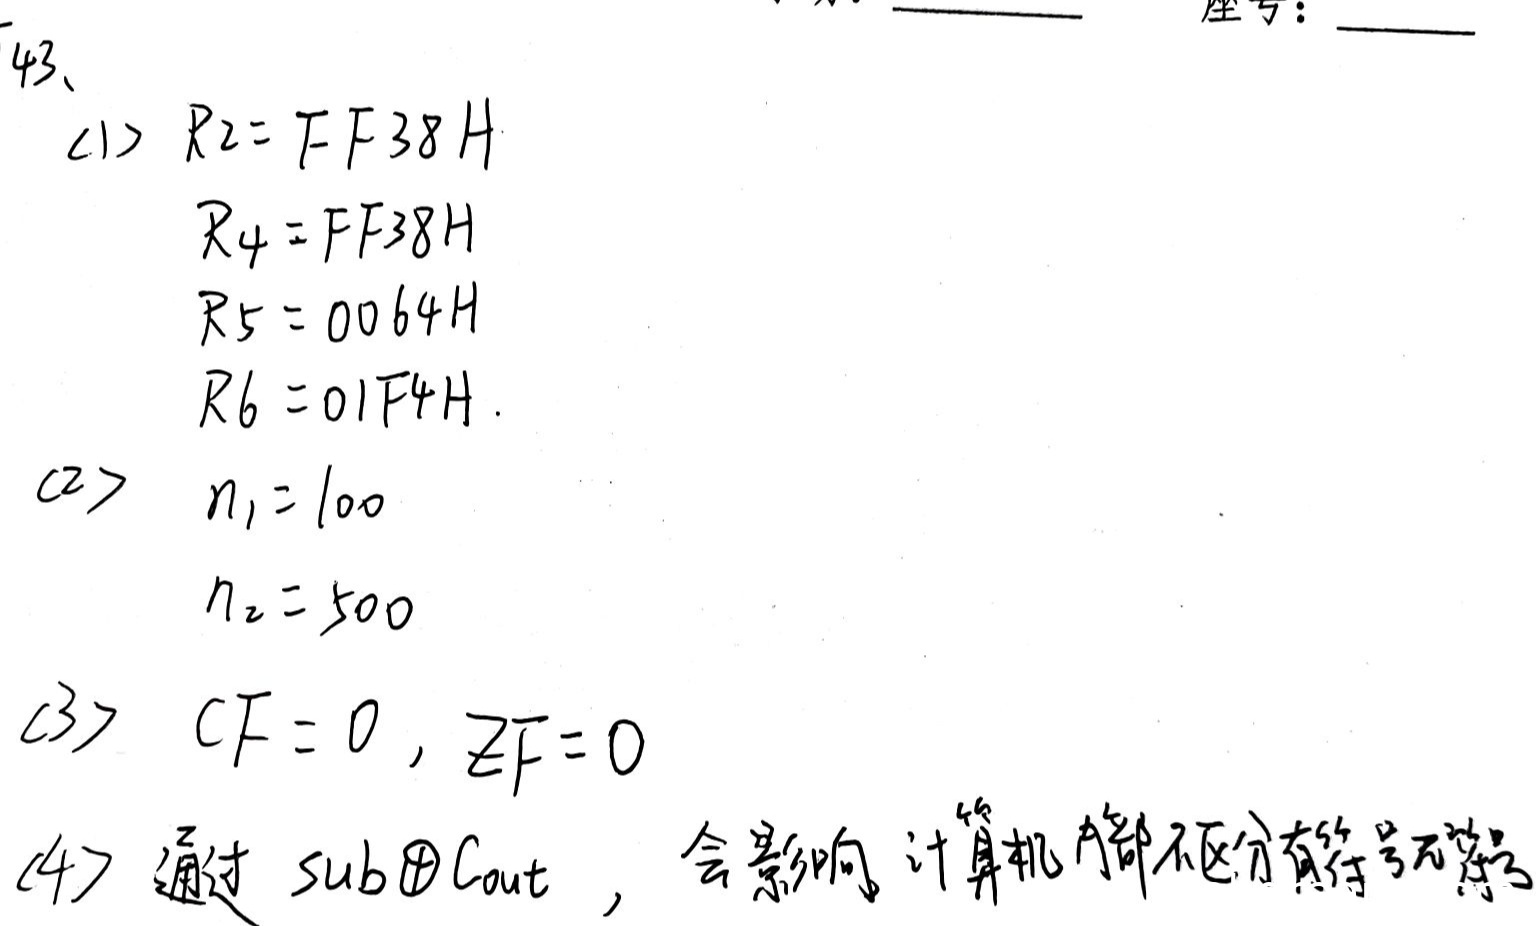 座号：
43、
<1> R2 = FF38H
R4 = FF38H
R5 = 0064H
R6 = 01F4H.
<2> n₁ = 100
n₂ = 500
<3> CF = 0, ZF = 0
<4> 通过 sub⊕Cout, 会影响 计算机内部不区分有符号无符号